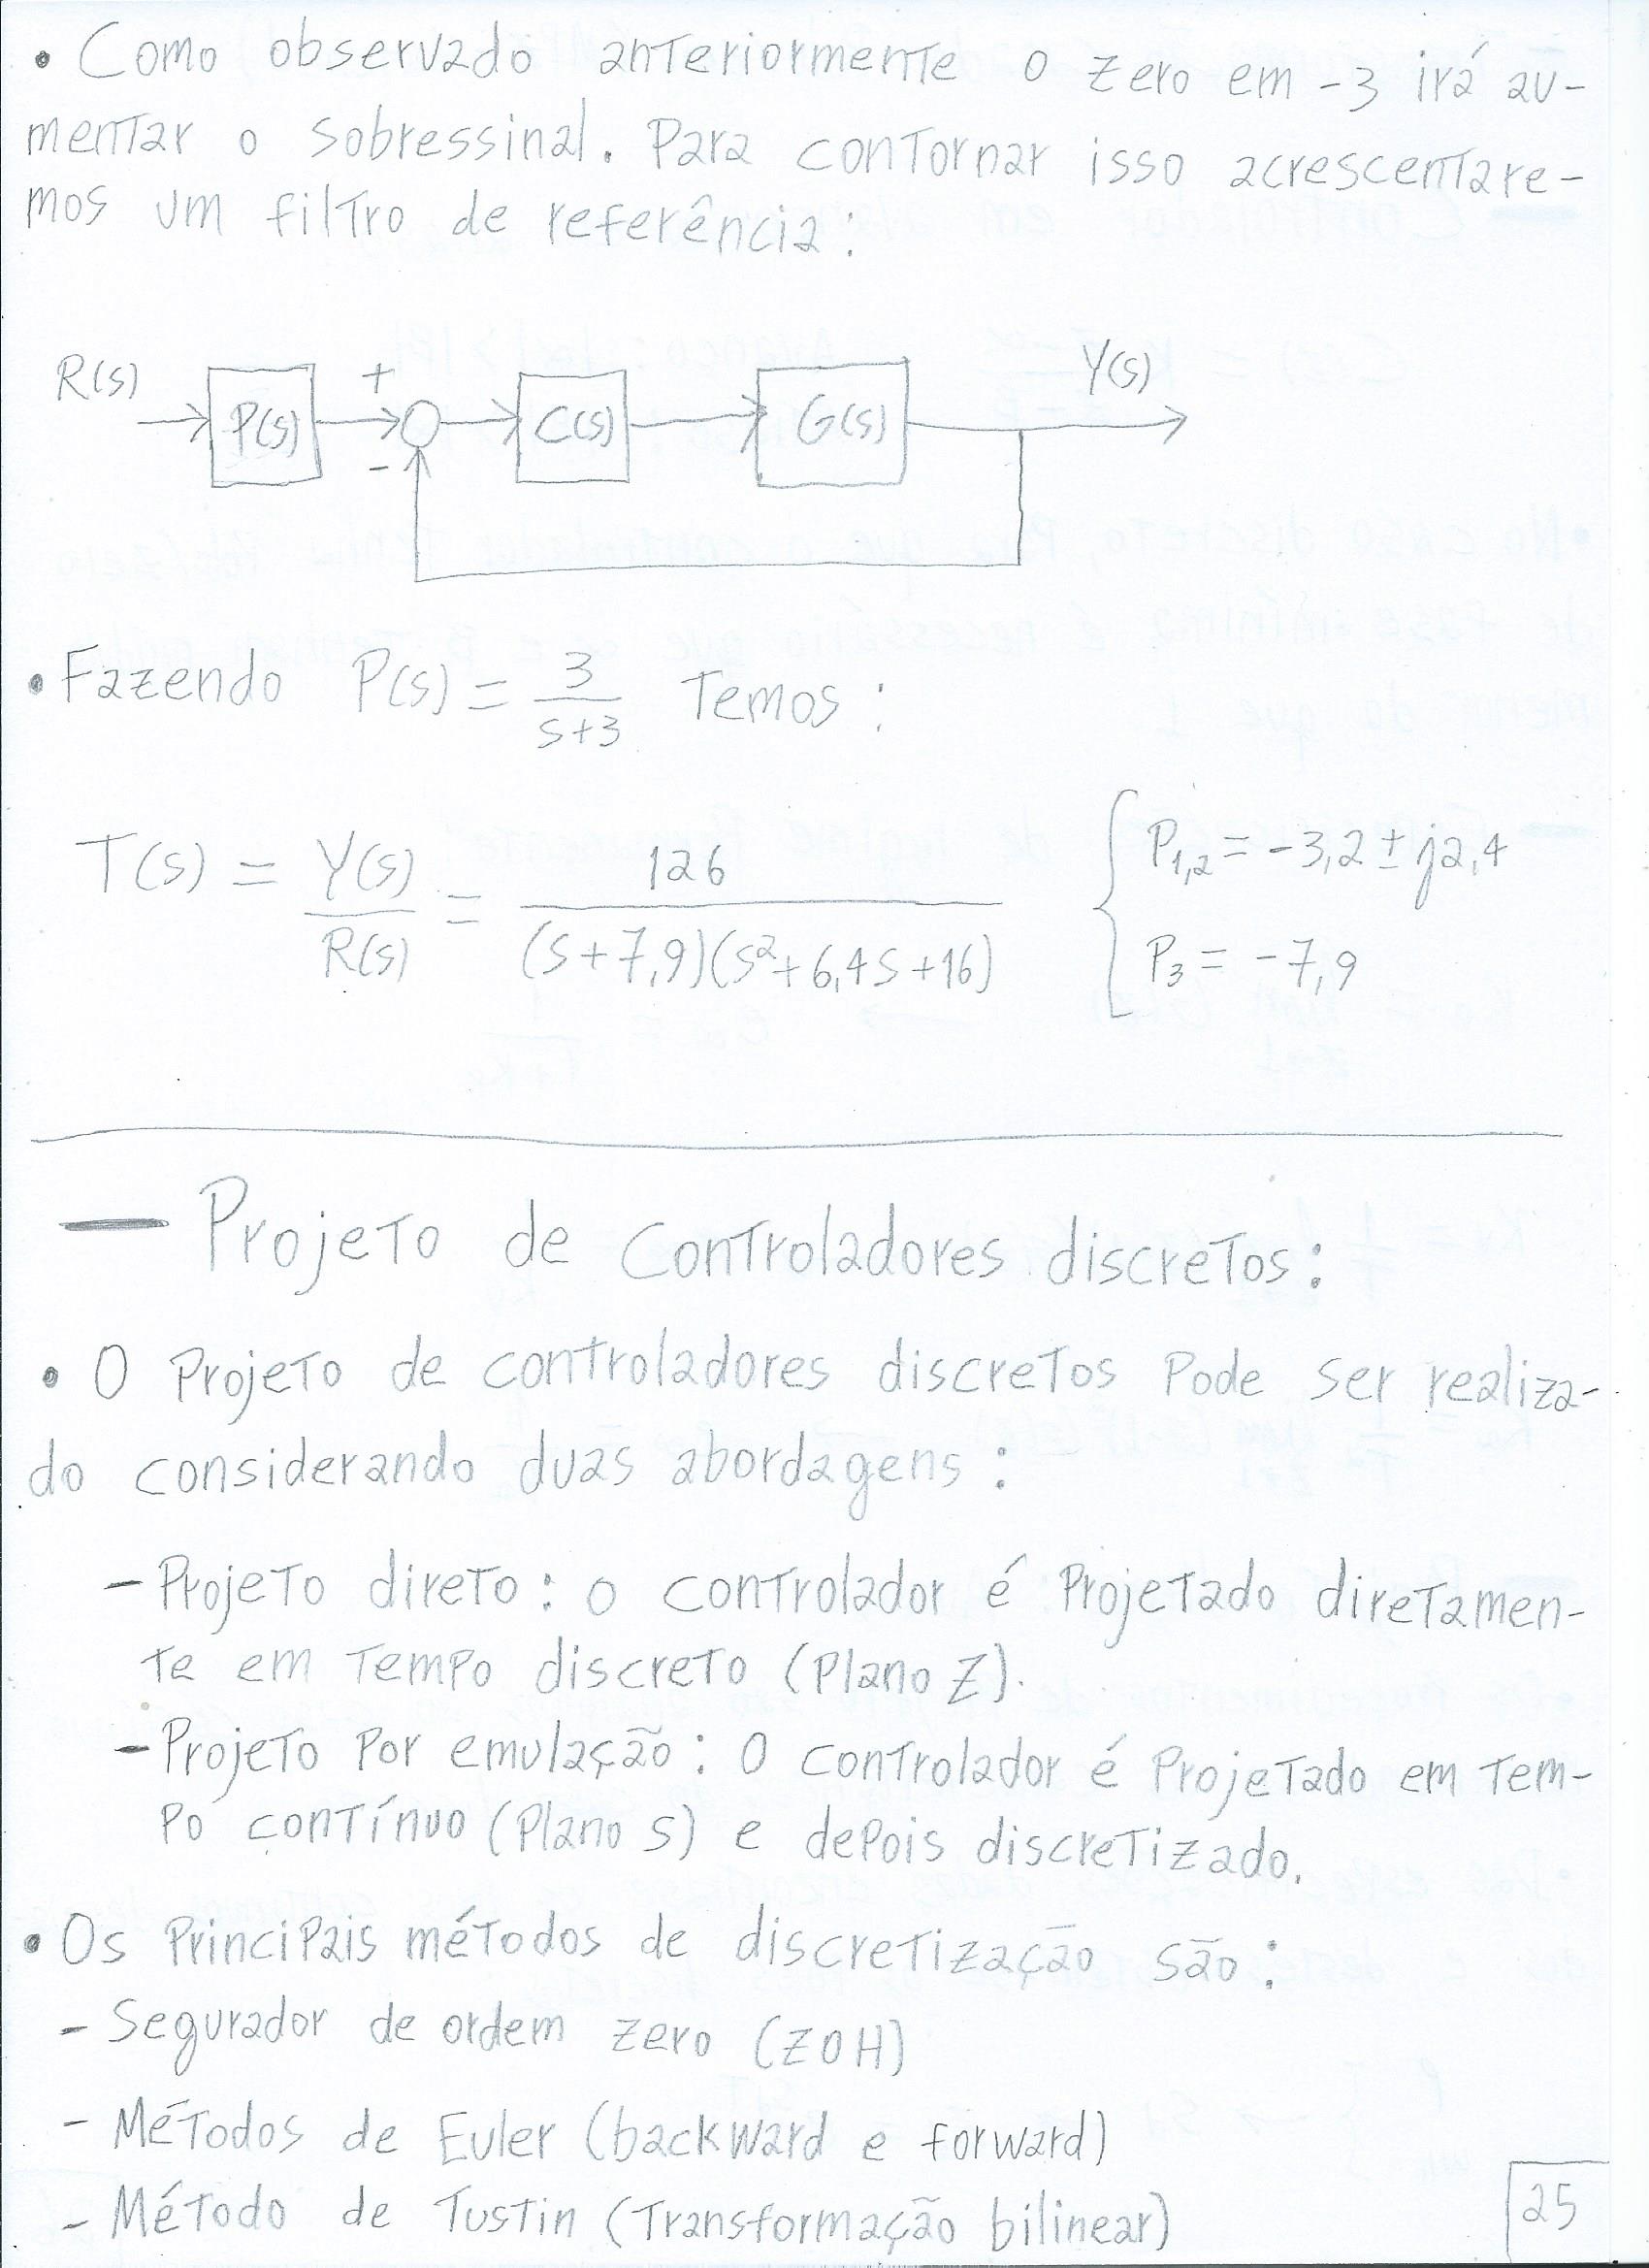 • Como observado anteriormente o zero em -3 irá au-
mentar o sobressinal. Para contornar isso acrescentare-
mos um filtro de referência:
R(s) P(s) + - C(s) G(s) Y(s)
• Fazendo P(s) = 3/(s+3) Temos:
T(s) = Y(s)/R(s) = 126/((s+7,9)(s²+6,4s+16)) { P1,2 = -3,2 ± j2,4
P3 = -7,9
— Projeto de Controladores discretos:
• O Projeto de controladores discretos Pode ser realiza-
do considerando duas abordagens:
- Projeto direto: o controlador é Projetado diretamen-
te em Tempo discreto (Plano Z).
- Projeto Por emulação: O controlador é Projetado em Tem-
Po contínuo (Plano S) e depois discretizado.
• Os Principais métodos de discretização são:
- Segurador de ordem zero (ZOH)
- Métodos de Euler (backward e forward)
- Método de Tustin (Transformação bilinear)
25